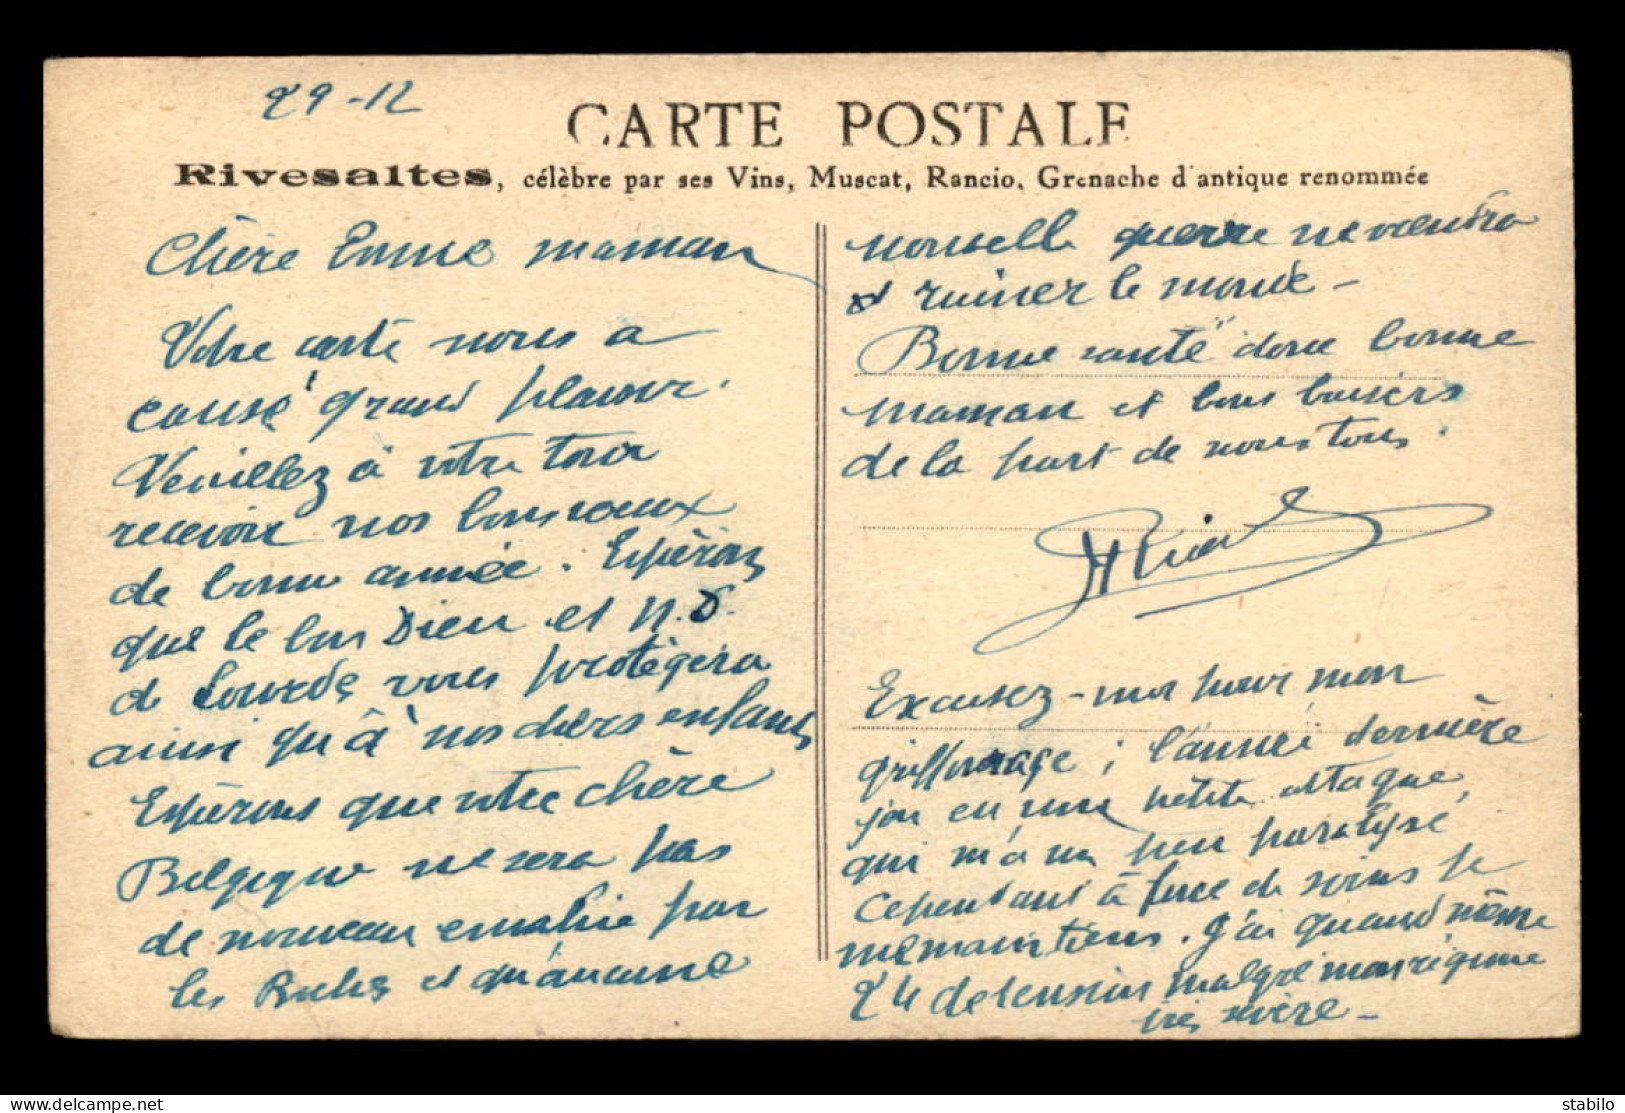 29-12
CARTE POSTALE
Rivesaltes, célèbre par ses Vins, Muscat, Rancio, Grenache d'antique renommée
Chère Bonne maman
Votre carte nous a
causé grand plaisir.
Veuillez à votre tour
recevoir nos bons voeux
de bonne année. Espérons
que le bon Dieu et N.D.
de Lourdes vous protègera
ainsi qu'à nos chers enfants
Espérons que votre chère
Belgique ne sera pas
de nouveau envahie par
les Boches et qu'aucune
nouvelle guerre ne viendra
ruiner le monde -
Bonne santé donc bonne
maman et bons baisers
de la part de nous tous.
Excusez-moi pour mon
griffonnage ; l'année dernière
j'ai eu une petite attaque,
qui m'a un peu paralysé
Cependant à force de soins je
me maintiens. J'ai quand même
24 de tension malgré mon régime
très sévère -
stabilo
delcampe.net